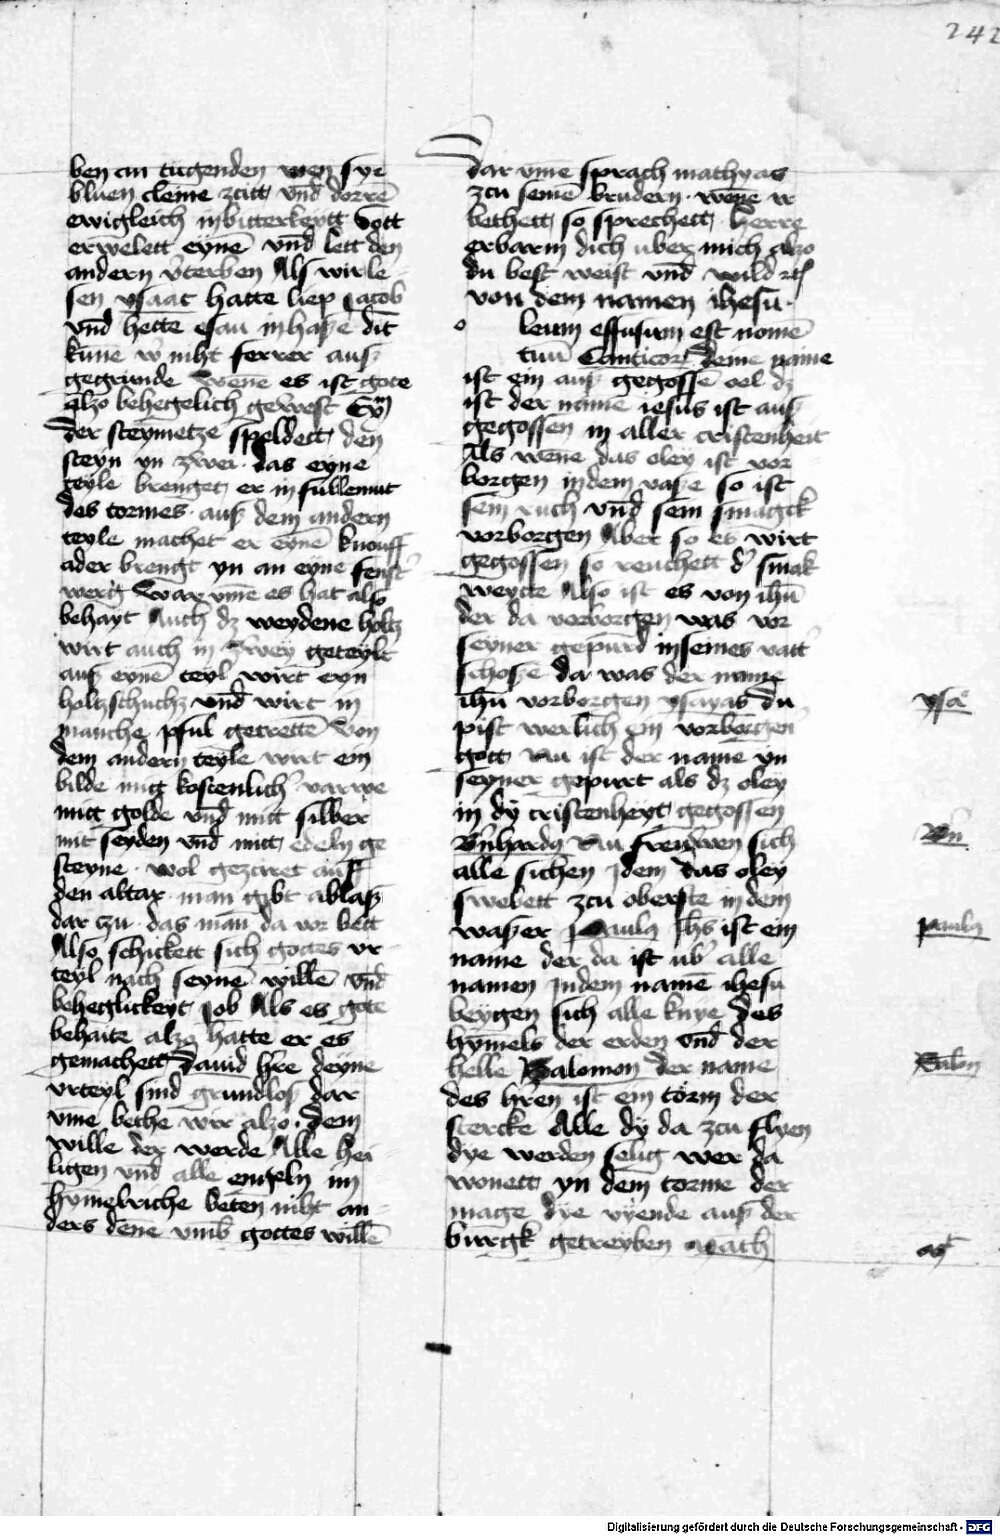 242
ben an tugenden wen sye
bluen cleine zcitt vnd dorrē
ewigleich in bitterkeytt Gott
erwelett eynē vnd lett den
andern v̓terben Als wir le
sen ysaac hatte liep Jacob
vnd hette esau in haße dit
kūne w niht ferrer auß
gegrunde Wene es ist gote
alzo behegelich gewest Eyn
der steymetze speldett den
steyn yn zwei · das eyne
teyle brenget er in fullemut
des tormes · auß dem andern
teyle machet er eynē knouff
ader brengt yn an eyne fenst̓
werg War vmē es hat also
behayt Auch dz weydene holtz
wirt auch in Zwey geteylt
auß eynē teyl wirt eyn
holtzschuch vnd wirt in
manche pful getrettē Von
dem andern teyle wirt ein
bilde mitt kostenlich̓ varwe
mitt golde vnd mitt silber
mit seyden vnd mitt edeln ge
steyne · wol geziret auff
den altar · man gibt ablaß
dar tzu · das man da vor bett
Also schickett sich gottes vr
teyl nach seynē willē vnd
beheglickeyt Job Als es gote
behaite alzo hatte er es
gemachett Dauid hre deyne
vrteyl sind grundloß dar
vme bethe wir alzo · dem
wille der werde Alle hei
ligen vnd alle engeln im
hymelriche beten niht an
ders dene vmb gottes willē
Dar vmē sprach mathyas
zcu seinē brudern · wene ir
bethett so sprechett Herre
erbarm dich uber mich alzo
du best weist vnd wild etc
von dem namen ihesu ·
o leum effusum est nomē
tuū Canticorum deine name
ist ein auß gegossē oel dz
ist der name iesus ist auß
gegossen in aller cristenheit
Als wene das oley ist vor
borgen in dem vaße so ist
sein ruch vnd sein smagck
vorborgen Aber so es wirt
gegossen so reuchett d̓ smak
weytte Also ist es von ihū
der da vorborgen was vor
seyner gepurd in seines vatt̓
schosse da was der name
ihū vorborgen ysayas du
pist werlich ein vorborgen
gott Nu ist der namē yn
seyner gepurt als dz oley
in dy cristenheyt gegossen
B̓nhardꝰ Nu frewen sich
alle sichen Idem das oley
swebett zcu oberste in dem
waßer Paulꝰ Jhs ist ein
name der da ist ub̓ alle
namen In dem namē ihesu
beygen sich alle knye des
hymels der erden vnd der
helle Salomon der name
des hren ist ein torm der
stercke Alle dy da zcu flyen
dye werden selig wer da
wonett yn dem torme der
mage dye vyende auß der
burgk getreyben Math
ysa
B̓n
paulꝰ
Salon
mt
Digitalisierung gefördert durch die Deutsche Forschungsgemeinschaft - DFG